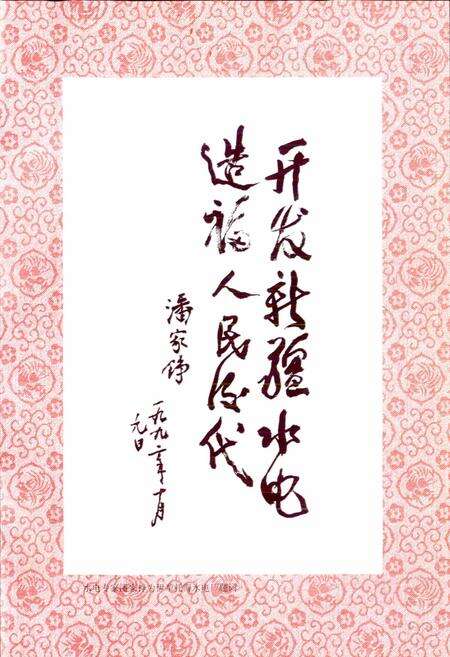 开发新疆水电
造福人民后代
潘家铮
一九九二年十月
九日